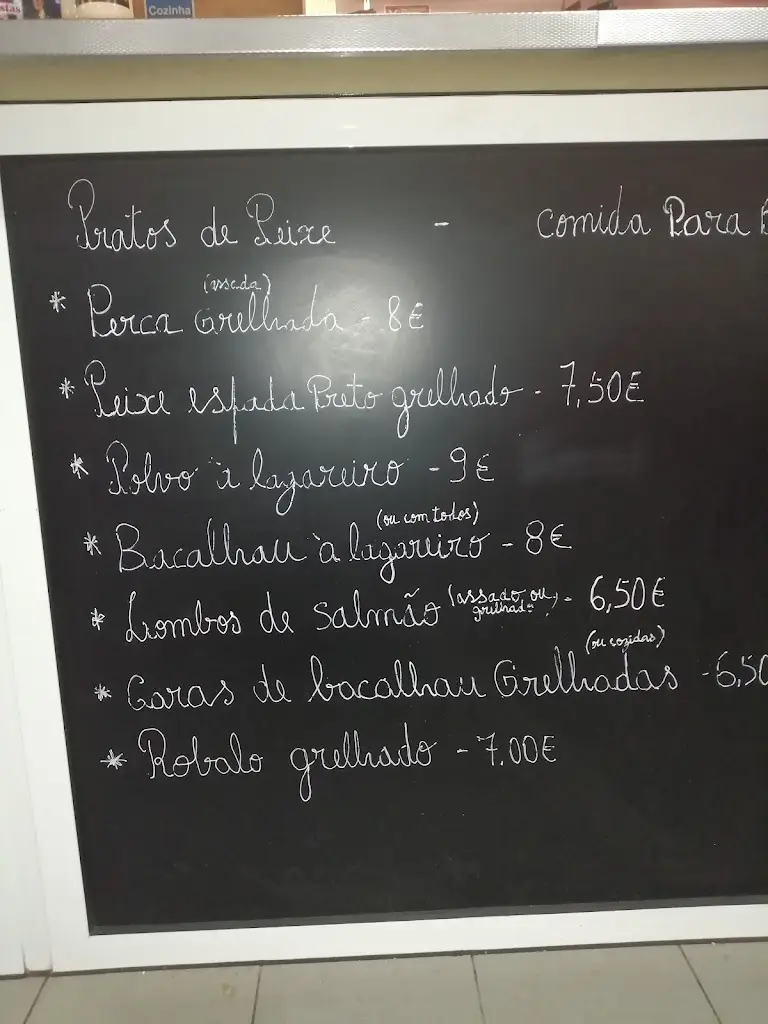 Cozinha
Pratos de Peixe - comida Para
(assada)
* Perca Grelhada - 8€
* Peixe espada Preto grelhado - 7,50€
* Polvo à lagareiro - 9€
(ou com todos)
* Bacalhau à lagareiro - 8€
* Lombos de salmão (assado ou grelhado) - 6,50€
(ou cozidas)
* Caras de bacalhau Grelhadas - 6,50
* Robalo grelhado - 7.00€